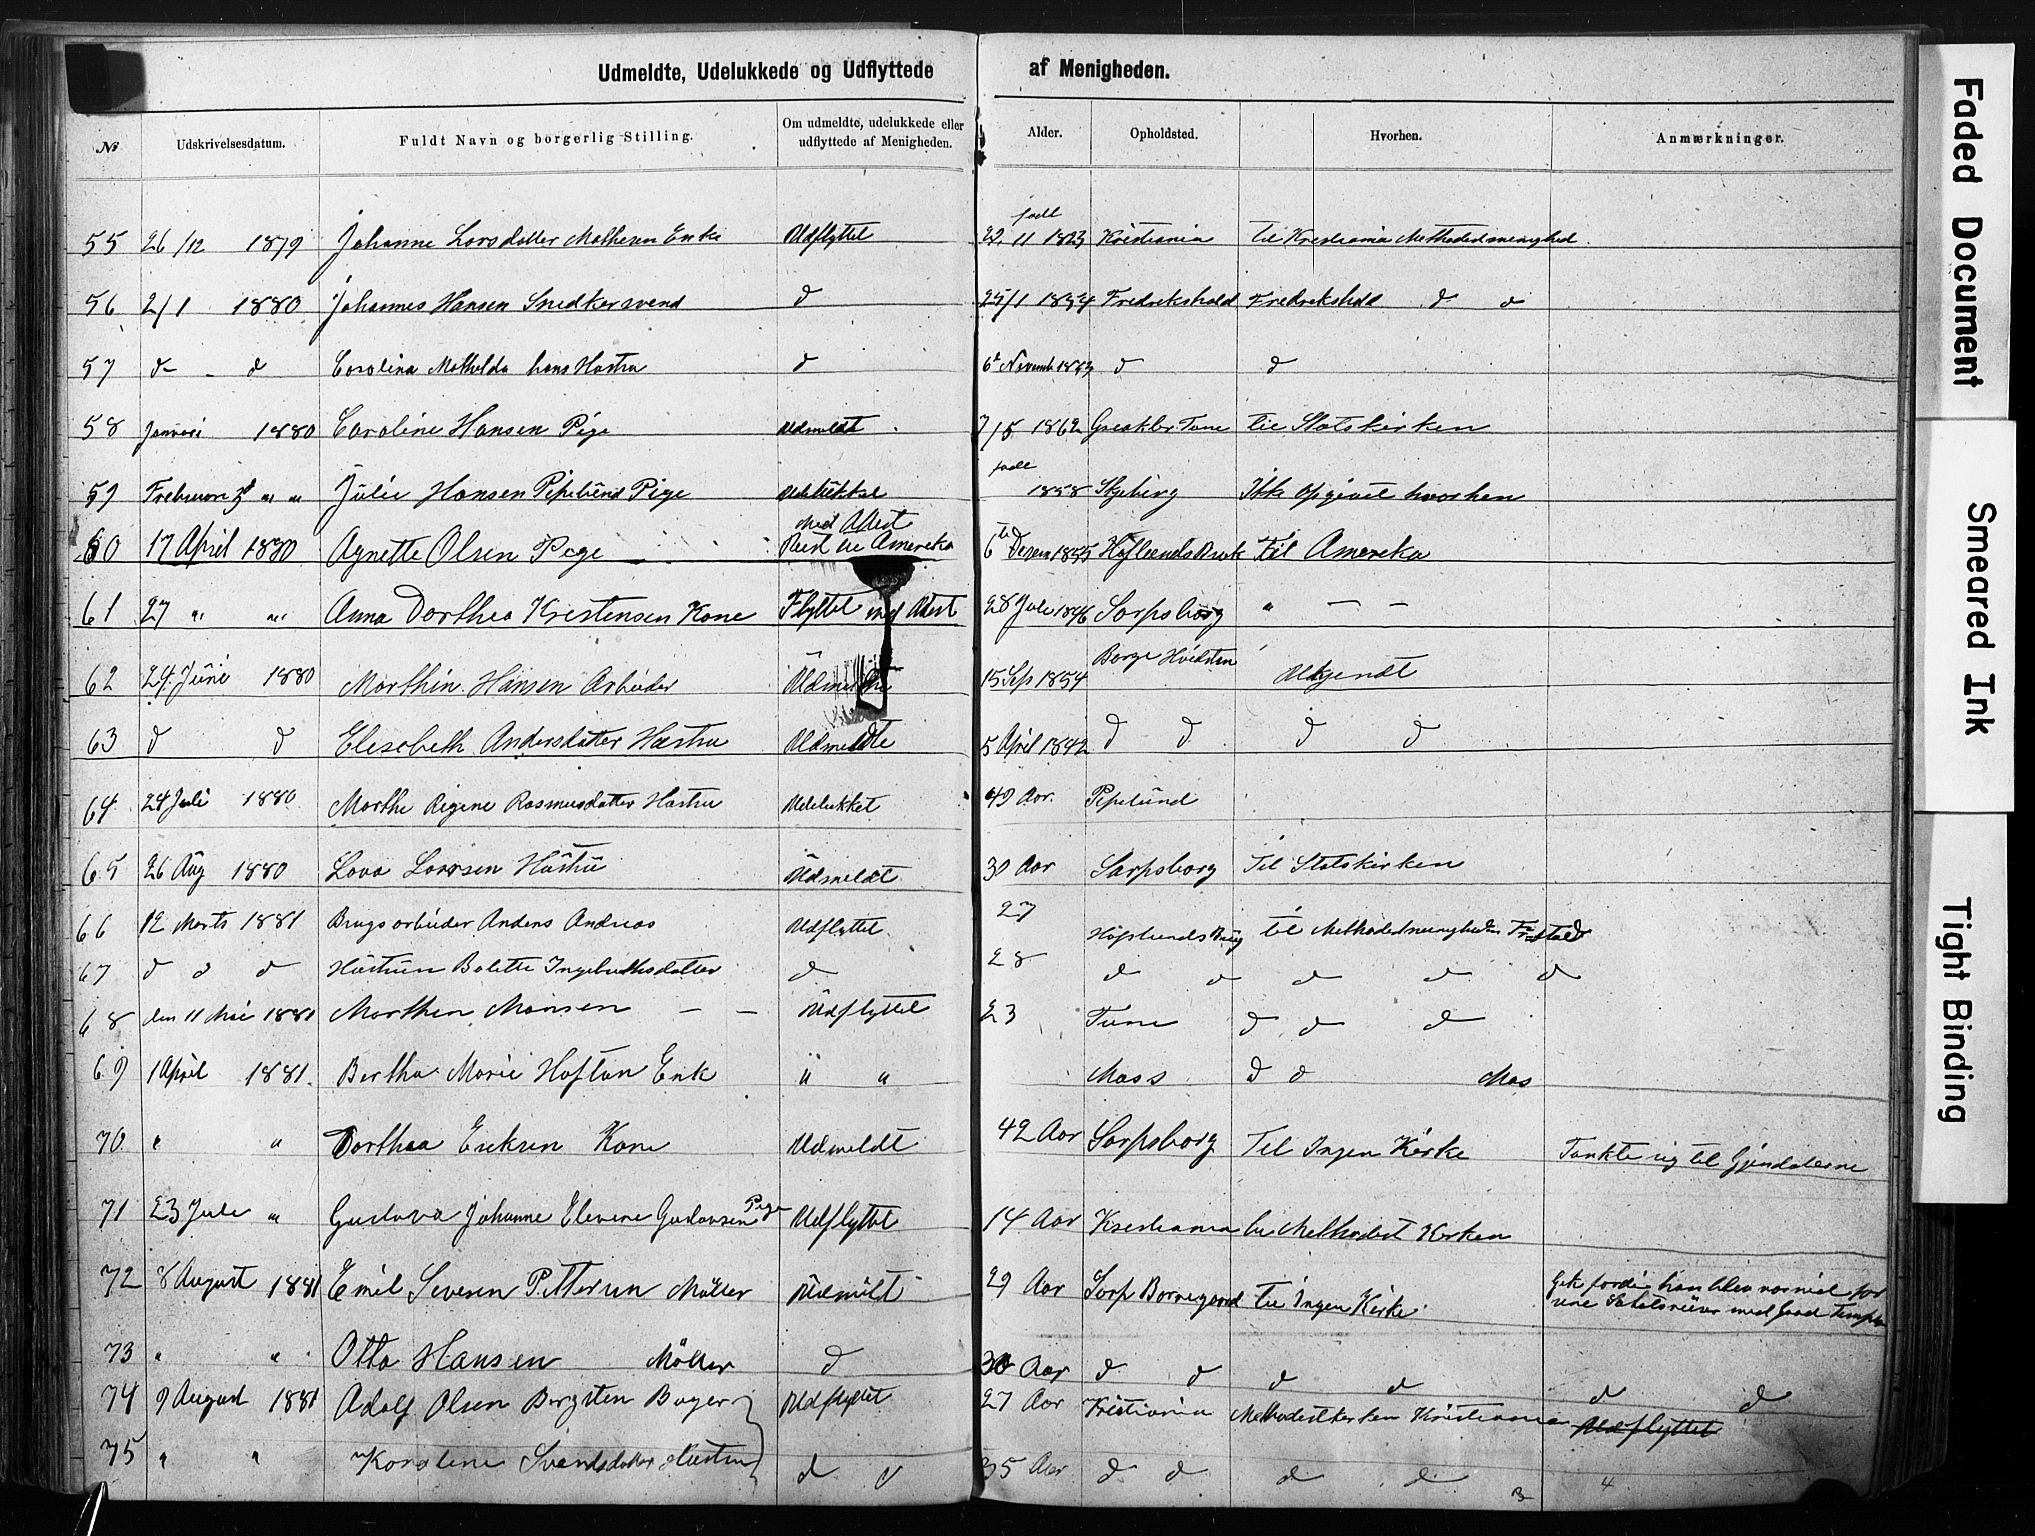 Udmeldte, Udelukkede og Udflyttede af Menigheden.
No Udskrivelsesdatum. Fuldt Navn og borgerlig Stilling. Om udmeldte, udelukkede eller udflyttede af Menigheden. Alder. Opholdsted. Hvorhen. Anmærkninger.
55 26/12 1879 Johanne Larsdatter Mathesen Enke Udflyttet født 22. 11 1823 Kristiania til Kristiania Methodistmenighed.
56 2/1 1880 Johannes Hansen Snedkersvend d 25/1 1854 Fredrikshald Fredrikshald d d
57 d - d Carolina Mathilda hans Hustru d 6t Novemb 1853 d d
58 Januari 1880 Caroline Hansen Pige Udmeldt 7/5 1862 Greaker Tune til Statskirken
59 Februari " " Julie Hansen Pipelund Pige Udelukket født 1858 Skjeberg Ikke opgivet hvorhen
60 17 April 1880 Agnette Olsen Pige med Attest Reist til Amerika 6te Desem 1855 Hafslunds Bruk Til Amerika
61 27 " " Anna Dorthea Kristensen Kone Flyttet med Attest 28 Juli 1846 Sarpsborg " — —
62 24. Juni 1880 Marthin Hansen Arbeider Udmeldte 15 Sep 1854 Borge Hvidsten Ukjendt
63 d d Elisabeth Andersdatter Hustru Udmeldte 5 April 1842 d d d d
64. 24 Juli 1880 Marthe Regine Rasmusdatter Hustru Udelukket 49 Aar. Pipelund
65 26 Aug 1880 Lova Larsen Hustru Udmeldt 30 Aar Sarpsborg Til Statskirken
66 12 Marts 1881 Brugsarbeider Anders Andreas Udflyttet 27 Hafslunds Brug til Methodistmenigheden Frstad
67 d d d Hustruen Bolette Ingebrethsdatter d 28 d d d d d
68 den 11 Mai 1881 Marthin Monsen — — Udflyttet 23 Tune d d d
69 1 April 1881. Bertha Marie Haftan Enk " " Moss d d Mos
70. " " Dorthea Eriksen Kone Udmeldt 42 Aar Sarpsborg Til Ingen Kirke Tænkte sig til Gjendøberne
71 23 Juli " Gustava Johanne Elevine Gustavsen Pige Udflyttet 14 Aar Kristiania til Methodist Kirken
72 8 August 1881 Emil Severin Pettersen Møller Udmeldt 29 Aar Sarp Borregaard til Ingen Kirke Gik fordi han blev
73 " " Otto Hansen Møller d 30 Aar d d d d d d
74 9 August 1881 Adolf Olsen Bergsten Bager Udflyttet 27 Aar Kristiania Methodistkirken Kristiania Udflyttet
75 " " Karoline Svendsdatter Hustru d d 35 Aar d d d d
Faded Document
Smeared Ink
Tight Binding